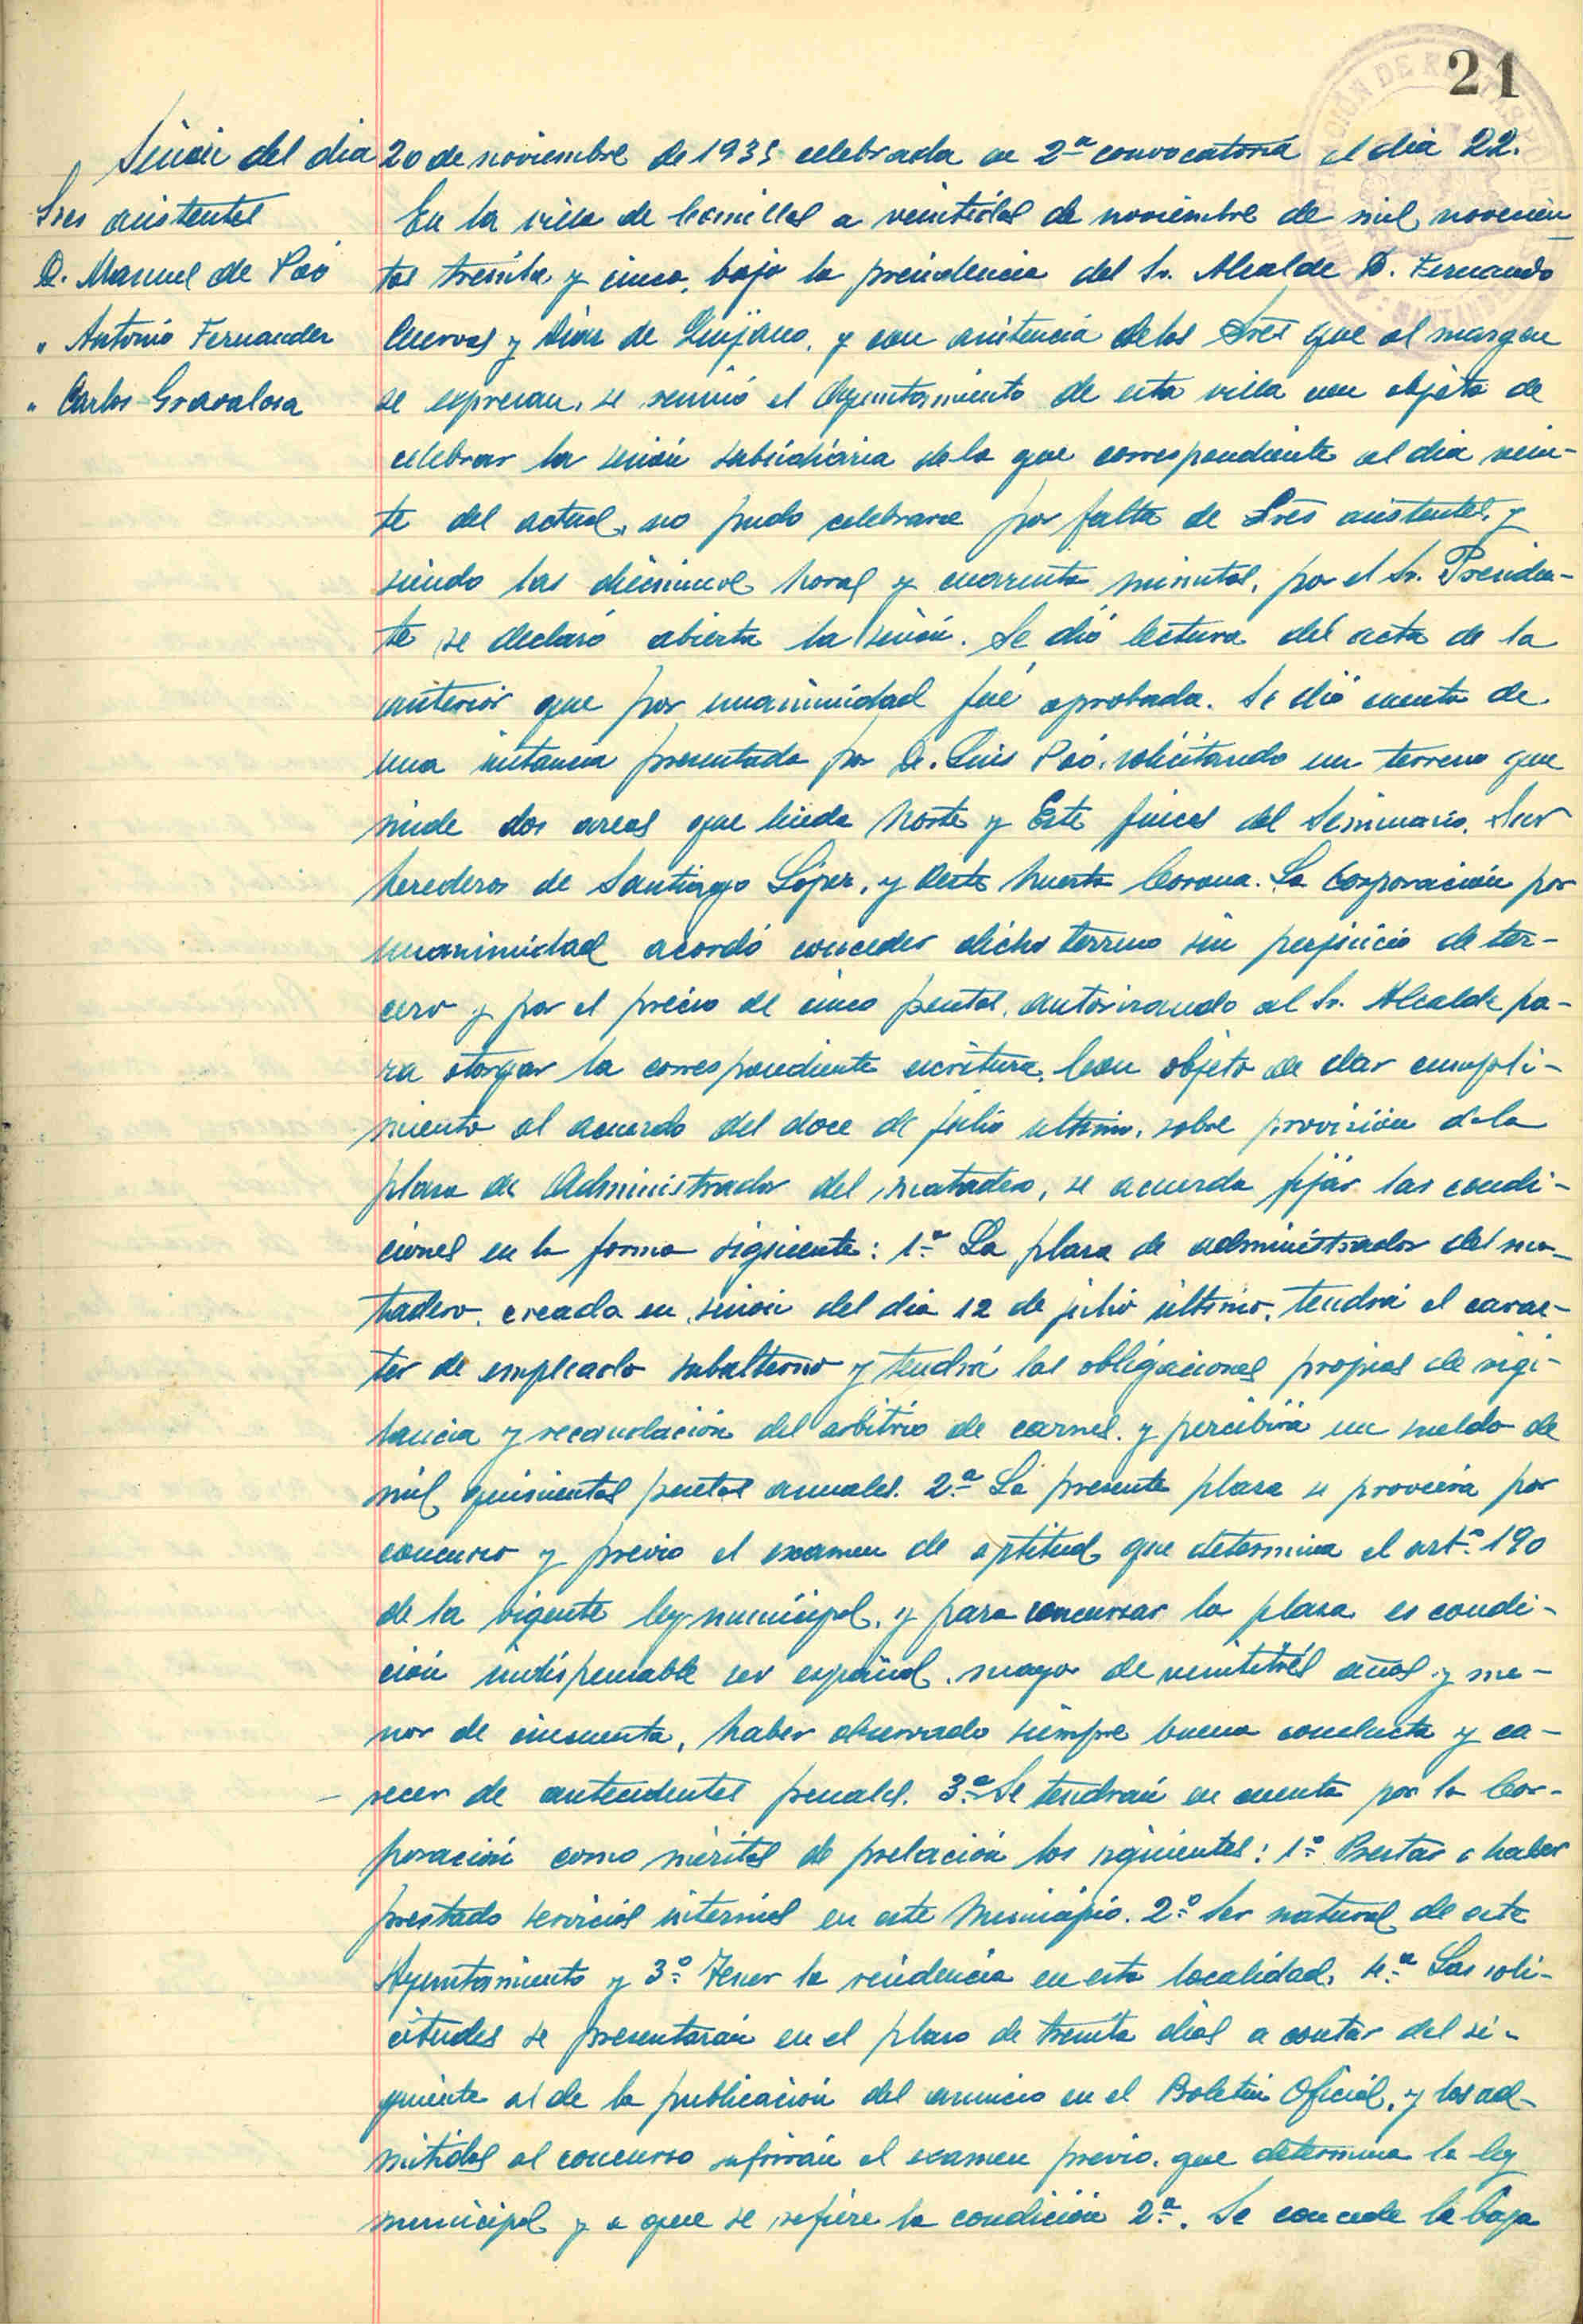 21
Sesión del dia 20 de noviembre de 1935 celebrada en 2ª convocatoria el dia 22.
Sres asistentes
D. Manuel de Poó
" Antonio Fernandez
" Carlos Gravalosa
En la villa de Comillas a veintidos de noviembre de mil novecien-
tos treinta y cinco, bajo la presidencia del Sr. Alcalde D. Fernando
Cuevas y Diaz de Quijano, y con asistencia de los Sres que al margen
se expresan, se reunió el Ayuntamiento de esta villa con objeto de
celebrar la sesión subsidiaria de la que correspondiente al dia vein-
te del actual, no pudo celebrarse por falta de Sres asistentes, y
siendo las diecinueve horas y cuarenta minutos, por el Sr. Presiden-
te se declaró abierta la sesión. Se dió lectura del acta de la
anterior que por unanimidad fué aprobada. Se dió cuenta de
una instancia presentada por D. Luis Poó, solicitando un terreno que
mide dos areas que linda Norte y Este fincas del Seminario, Sur
herederos de Santiago López, y Oeste huerta Corona. La Corporación por
unanimidad acordó conceder dicho terreno sin perjuicio de ter-
cero y por el precio de cinco pesetas, autorizando al Sr. Alcalde pa-
ra otorgar la correspondiente escritura. Con objeto de dar cumpli-
miento al acuerdo del doce de julio ultimo, sobre provisión de la
plaza de Administrador del matadero, se acuerda fijar las condi-
ciones en la forma siguiente: 1ª La plaza de administrador del ma-
tadero, creada en sesión del dia 12 de julio último, tendrá el carac-
ter de empleado subalterno y tendrá las obligaciones propias de vigi-
lancia y recaudación del arbitrio de carnes, y percibirá un sueldo de
mil quinientas pesetas anuales. 2ª La presente plaza se proveerá por
concurso y previo el examen de aptitud que determina el artº 190
de la vigente ley municipal, y para concursar la plaza es condi-
ción indispensable ser español, mayor de veintitrés años y me-
nor de cincuenta, haber observado siempre buena conducta y ca-
recer de antecedentes penales. 3ª Se tendrán en cuenta por la Cor-
poración como méritos de prelación los siguientes: 1º Prestar o haber
prestado servicios interinos en este Municipio. 2º Ser natural de este
Ayuntamiento y 3º Tener la residencia en esta localidad. 4ª Las soli-
citudes se presentarán en el plazo de treinta dias a contar del si-
guiente al de la publicación del anuncio en el Boletin Oficial, y los ad-
mitidos al concurso sufrirán el examen previo, que determina la ley
municipal y a que se refiere la condición 2ª. Se concede la baja